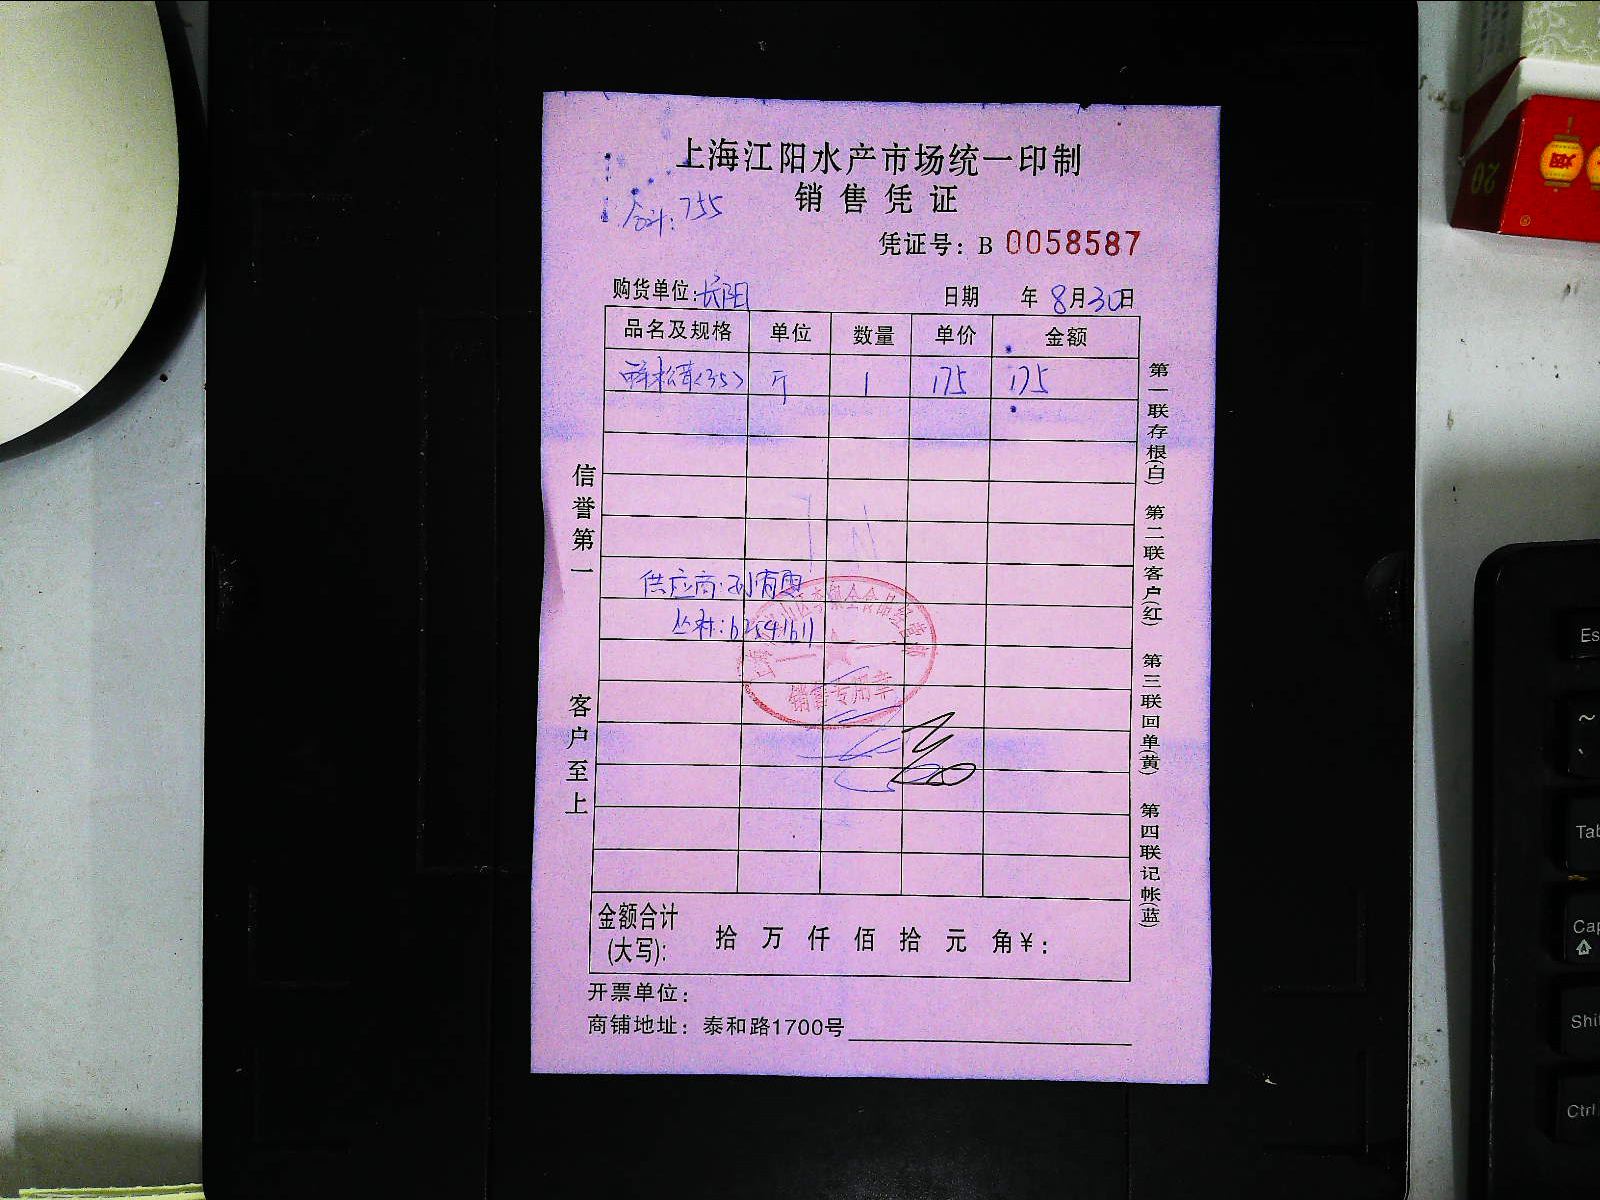 上海江阳水产市场统一印制
销售凭证
合计:755
凭证号: B 0058587
购货单位:长阳 日期 年8月30日
品名及规格 单位 数量 单价 金额
鲜松茸<35> 斤 1 175 175
供应商:孙有
丛林:62541611
销售专用章
金额合计
(大写): 拾 万 仟 佰 拾 元 角¥:
开票单位:
商铺地址: 泰和路1700号
信誉第一
客户至上
第一联存根(白)
第二联客户(红)
第三联回单(黄)
第四联记帐(蓝)
20
烟
Es
~
Tab
Cap
Shi
Ctrl